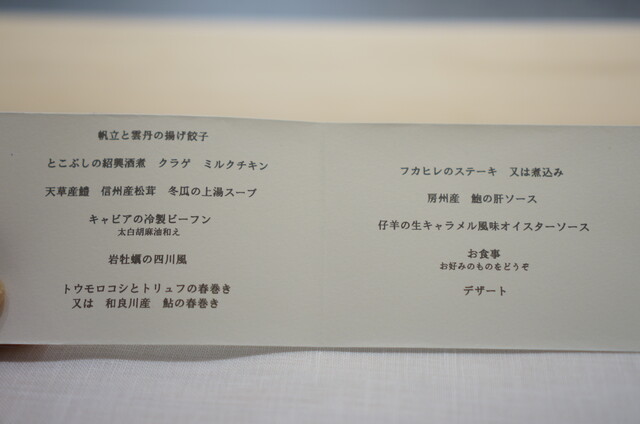 帆立と雲丹の揚げ餃子
とこぶしの紹興酒煮　クラゲ　ミルクチキン
天草産鱧　信州産松茸　冬瓜の上湯スープ
キャビアの冷製ビーフン
太白胡麻油和え
岩牡蠣の四川風
トウモロコシとトリュフの春巻き
又は　和良川産　鮎の春巻き
フカヒレのステーキ　又は煮込み
房州産　鮑の肝ソース
仔羊の生キャラメル風味オイスターソース
お食事
お好みのものをどうぞ
デザート